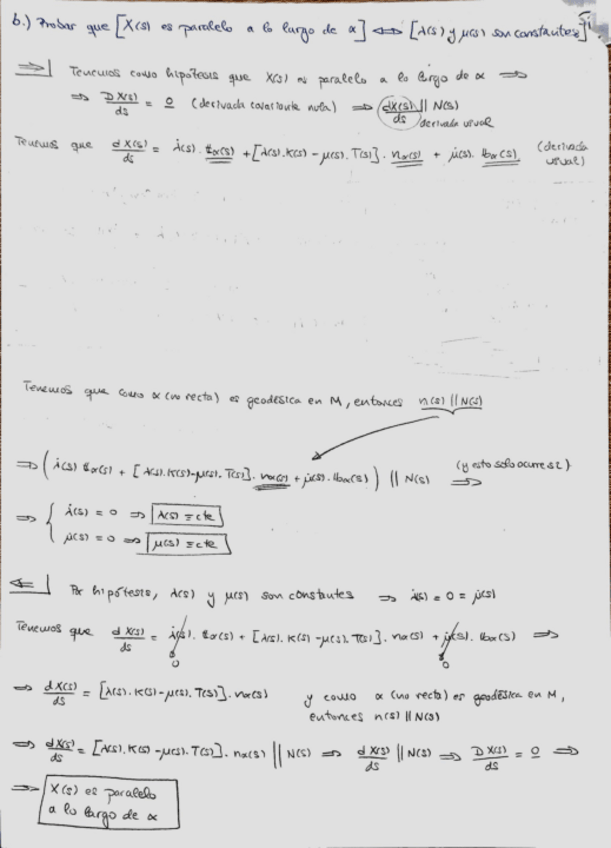 b.) Probar que [X(s) es paralelo a lo largo de α] ⟺ [λ(s) y μ(s) son constantes]
⟹| Tenemos como hipótesis que X(s) es paralelo a lo largo de α ⟹
⟹ DX(s)/ds = 0 (derivada covariante nula) ⟹ dX(s)/ds || N(s)
derivada usual
Tenemos que dX(s)/ds = λ̇(s). tα(s) + [λ(s).K(s) - μ(s).T(s)]. nα(s) + μ̇(s). bα(s) (derivada usual)
Tenemos que como α (no recta) es geodésica en M, entonces n(s) || N(s)
⟹ (λ̇(s) tα(s) + [λ(s).K(s)-μ(s).T(s)]. nα(s) + μ̇(s). bα(s)) || N(s) ⟹ (y esto solo ocurre si)
⟹ { λ̇(s) = 0 ⟹ λ(s) ≡ cte
μ̇(s) = 0 ⟹ μ(s) ≡ cte
⟸| Por hipótesis, λ(s) y μ(s) son constantes ⟹ λ̇(s) = 0 = μ̇(s)
Tenemos que dX(s)/ds = λ̇(s). tα(s) + [λ(s).K(s) - μ(s).T(s)]. nα(s) + μ̇(s). bα(s) ⟹
0 0
⟹ dX(s)/ds = [λ(s).K(s) - μ(s).T(s)]. nα(s) y como α (no recta) es geodésica en M,
entonces n(s) || N(s)
⟹ dX(s)/ds = [λ(s).K(s) - μ(s).T(s)]. nα(s) || N(s) ⟹ dX(s)/ds || N(s) ⟹ DX(s)/ds = 0 ⟹
⟹ X(s) es paralelo
a lo largo de α